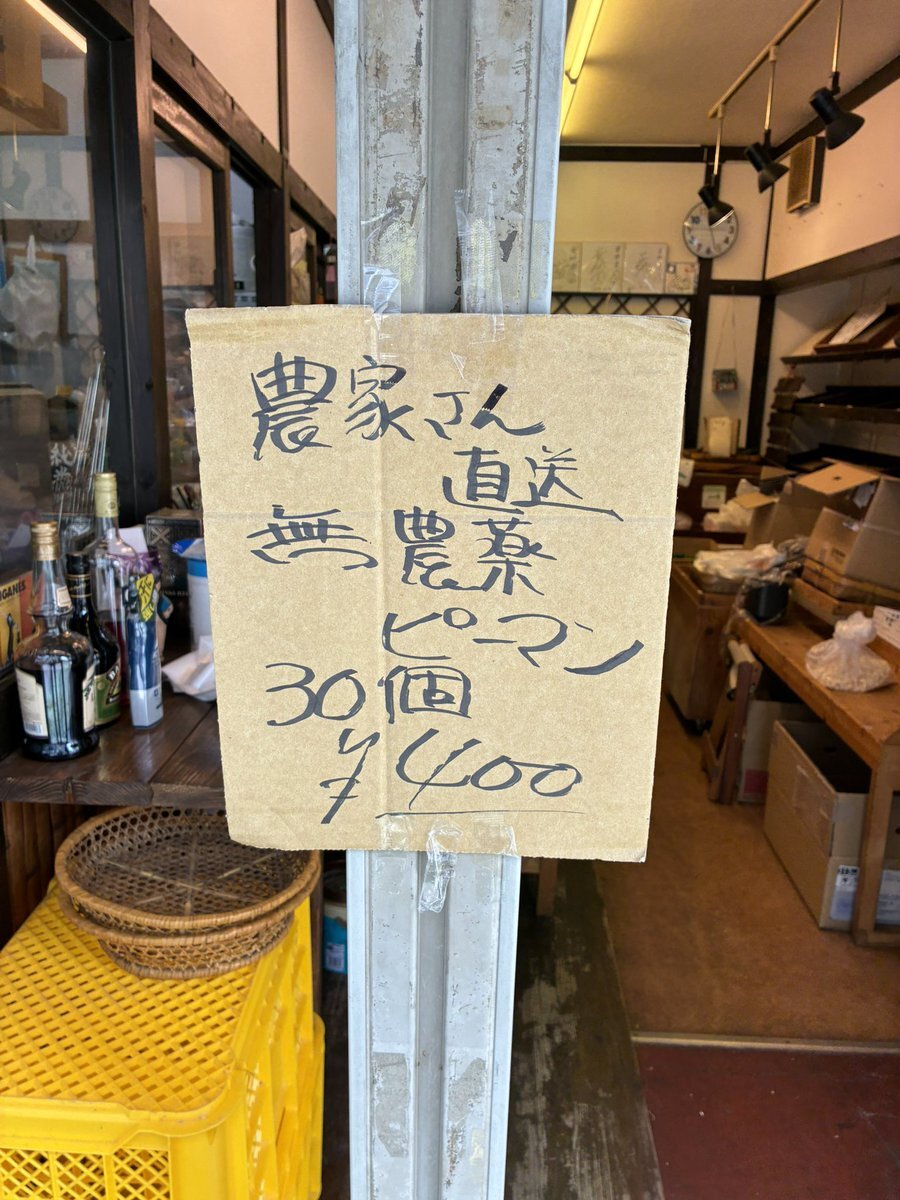 農家さん
直送
無農薬
ピーマン
30個
¥400